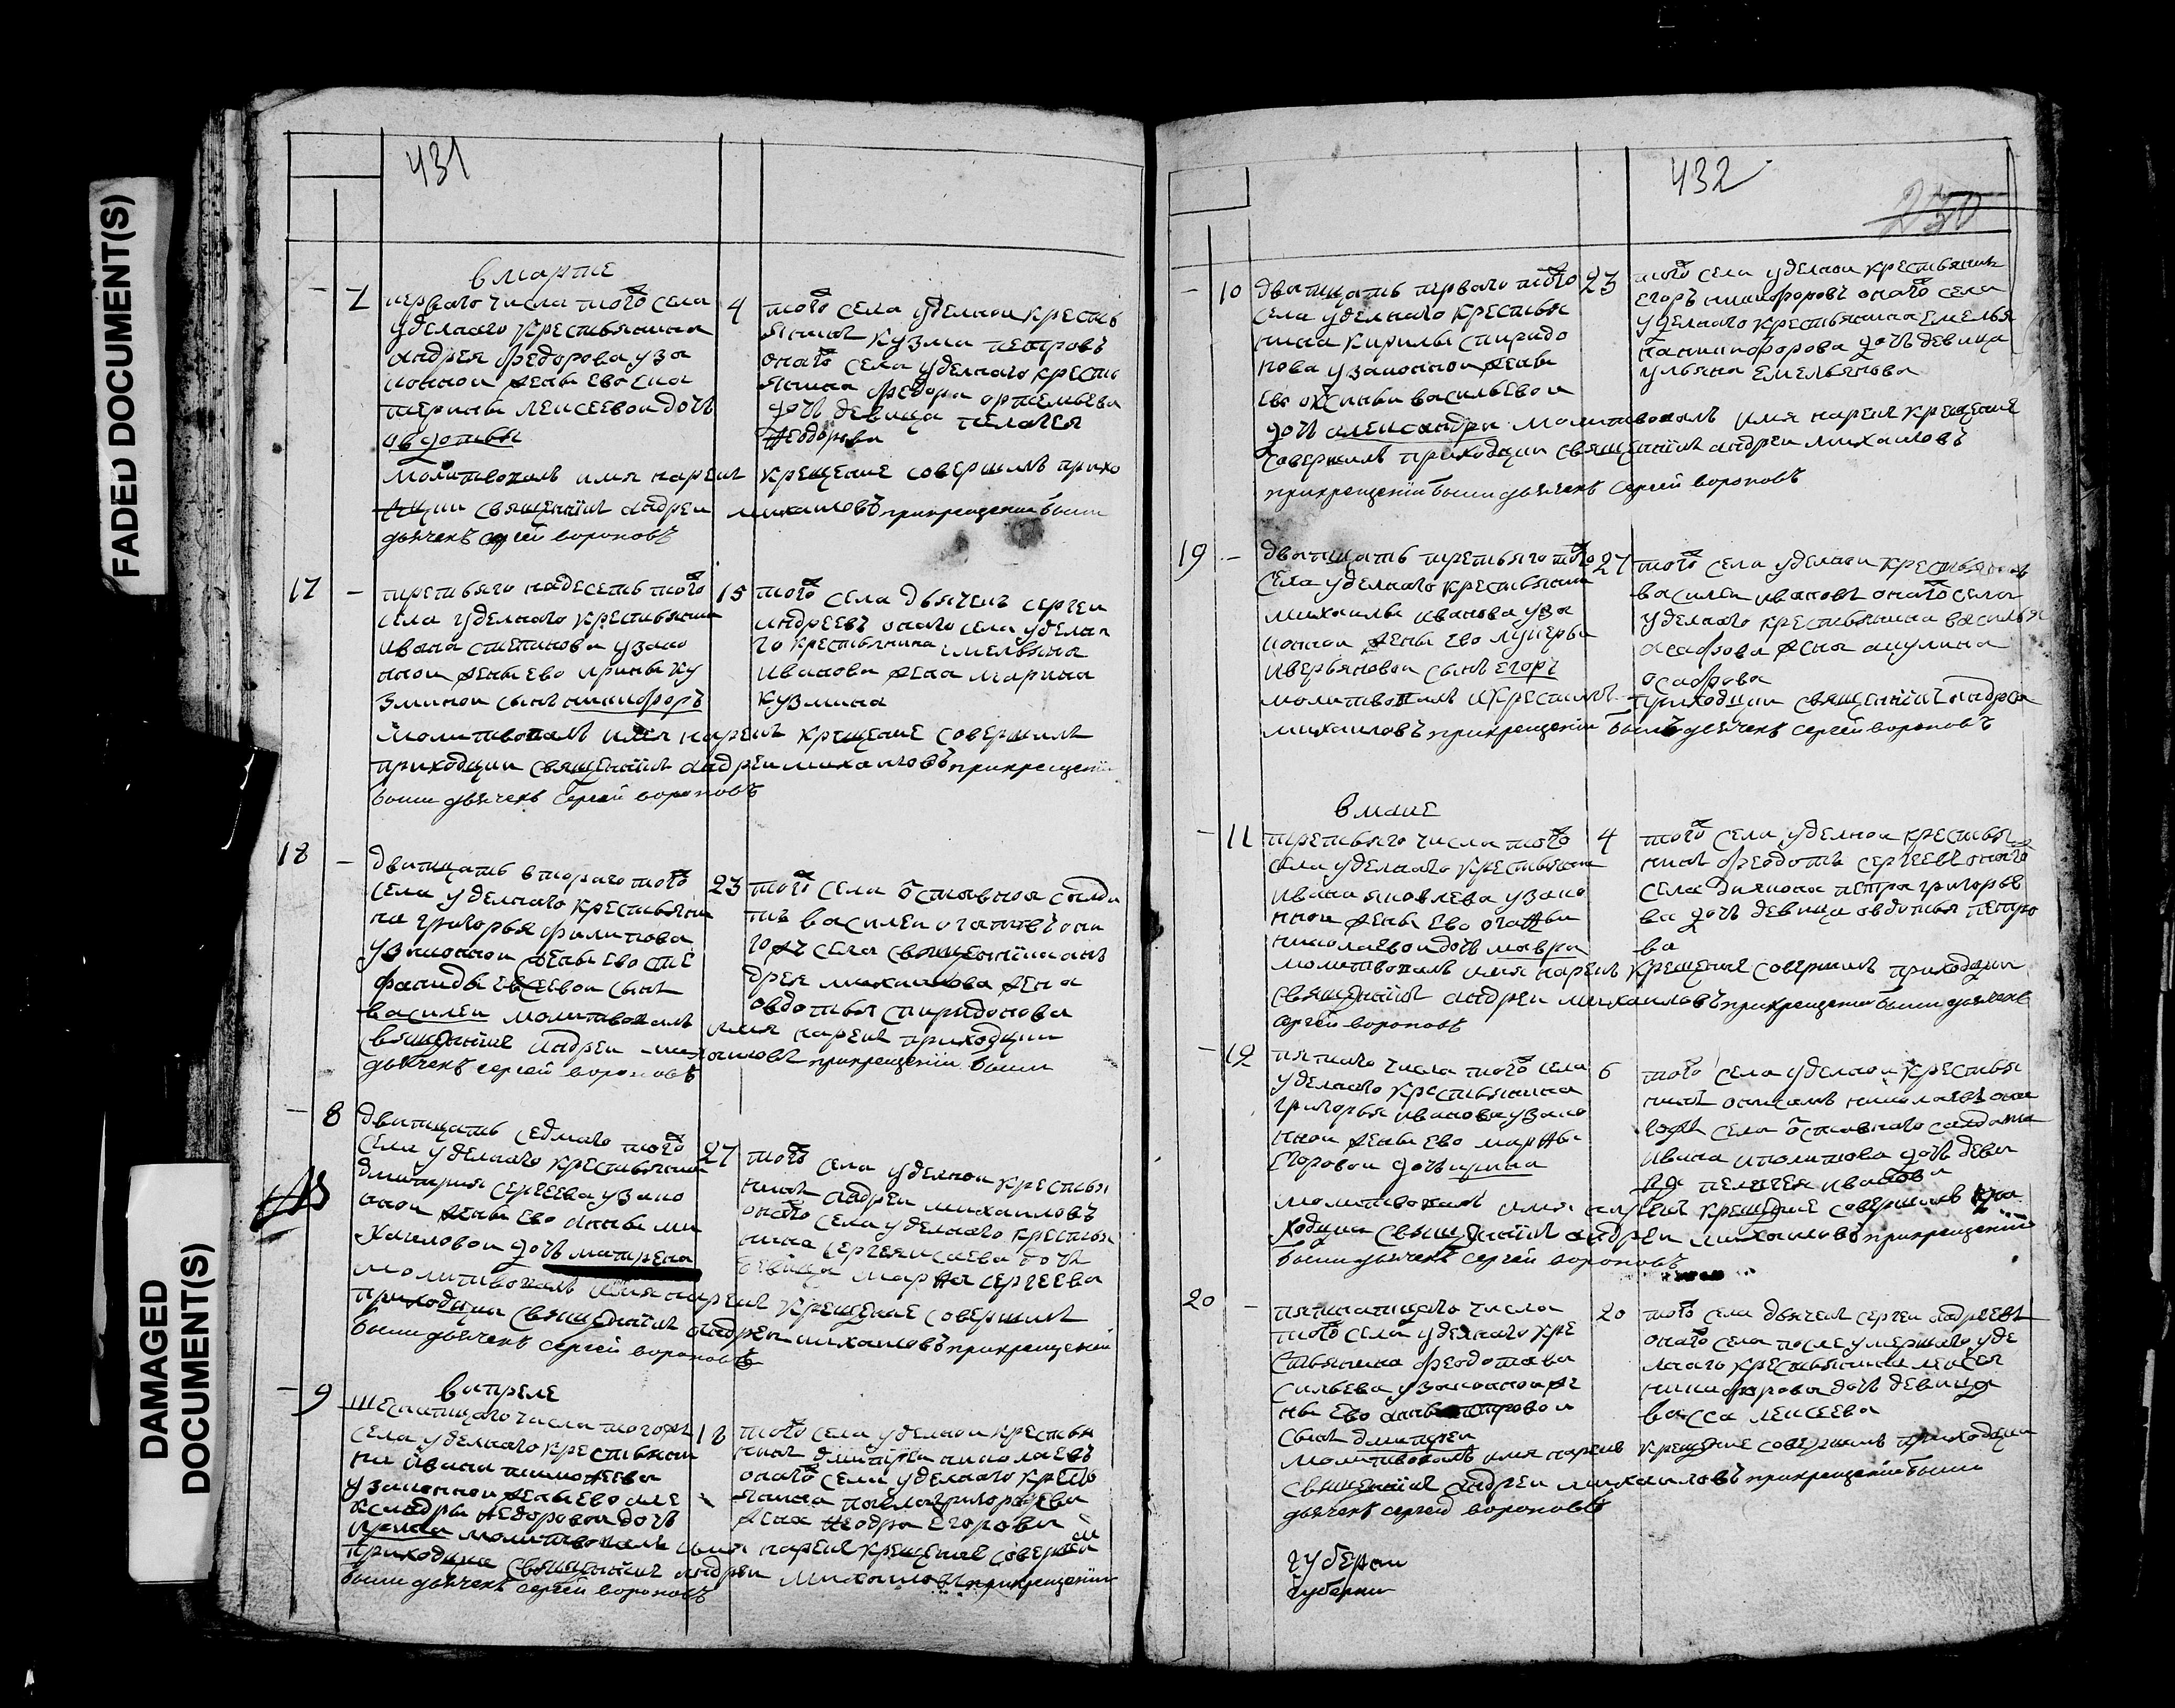 FADED DOCUMENT(S)
DAMAGED DOCUMENT(S)
431
в марте
7
перваго числа того села
уделнаго крестьянина
андрея федорова уза
конной жены ево ека
терины лексеевои дочь
авдотья
4
того села уделнои кресть
янинъ кузма петровъ
онаго села уделнаго кресть
янина федора артемьева
дочь девица пелагея
феодорова
молитвовалъ имя нарекъ крещение совершилъ прихо
дцки священникъ андреи михаиловъ при крещении былъ
дьячекъ сергей вороновъ
17
третьяго надесеть того
села уделнаго крестьянина
ивана степанова узако
ннои жены ево ирины ку
зминои сынъ никифоръ
15
того села дьячекъ сергеи
андреевъ онаго села уделна
го крестьянина емельяна
иванова жена марина
кузмина
молитвовалъ имя нарекъ крещение совершилъ
приходцки священникъ андреи михаиловъ при крещении
были дьячекъ сергей вороновъ
18
дватцать втораго того
села уделнаго крестьяни
на григорья филипова
узаконнои жены ево сте
фаниды евсеевои сынъ
василеи молитвовалъ
23
того села отставнои салда
тъ василеи
гожъ села священника ан
дрея михаилова жена
овдотья спиридонова
имя нарекъ приходцки
священникъ андреи михаиловъ при крещении были
дьячекъ сергей вороновъ
8
дватцать седмаго того
села уделнаго крестьянина
дмитрия сергеева узако
ннои жены ево анны ми
хаиловои дочь матрена
27
того села уделнои крестья
нинъ андреи михаиловъ
онаго села уделнаго крестья
нина сергея исаева дочь
девица марфа сергеева
молитвовалъ имя нарекъ крещение совершилъ
приходцки священникъ андреи михаиловъ при крещении
были дьячекъ сергей вороновъ
в апреле
9
шеснатцаго числа тогожъ
села уделнаго крестьяни
на ивана тимофеева
узаконнои жены ево але
ксандры федоровои дочь
ирина молитвовалъ имя нарекъ крещение совершилъ
18
того села уделнои крестья
нинъ дмитреи николаевъ
онаго села уделнаго кресть
янина павла григорьева
жена феодра егорова
приходцки священникъ андреи михаиловъ при крещении
были дьячекъ сергей вороновъ
432
250
10
дватцать перваго того
села уделнаго крестья
нина кирилы спиридо
нова узаконнои жены
ево оксиньи васильевои
23
того села уделнои крестьянин
егоръ никифоровъ онаго села
уделнаго крестьянина емелья
на никифорова дочь девица
ульяна емельянова
дочь александра молитвовалъ имя нарекъ крещение
совершилъ приходцки священникъ андреи михаиловъ
при крещении были дьячекъ сергей вороновъ
19
дватцать третьяго того
села уделнаго крестьянина
михаилы иванова уза
конной жены ево лукерьи
аверьяновои сынъ егоръ
27
того села уделнои крестьянинъ
василеи ивановъ онаго села
уделнаго крестьянина василья
осафова жена акулина
осафова
молитвовалъ и крестилъ приходцки священникъ андреи
михаиловъ при крещении былъ дьячекъ сергей вороновъ
в маие
11
третьяго числа того
села уделнаго крестьянина
ивана яковлева узако
ннои жены ево агафьи
николаевои дочь мавра
4
того села уделнои крестья
нинъ феодотъ сергеевъ онаго
села диякона петра григорье
ва дочь девица авдотья петро
ва
молитвовалъ имя нарекъ крещение совершилъ приходцки
священникъ андреи михаиловъ при крещении были дьячекъ
сергей вороновъ
12
пятаго числа того села
уделнаго крестьянина
григорья иванова узако
ннои жены ево марфы
егоровои дочь ирина
6
того села уделнои крестья
нинъ николаевъ она
гожъ села отставнаго салдата
ивана иполитова дочь деви
ца пелагея иванова
молитвовалъ имя нарекъ крещение совершилъ при
ходцки священникъ андреи михаиловъ при крещении
были дьячекъ сергей вороновъ
20
пятнатцаго числа
того села уделнаго кре
стьянина феодота ва
сильева узаконнои же
ны ево анны петровои
сынъ дмитреи
20
того села дьячекъ сергеи андреевъ
онаго села после умершаго уде
лнаго крестьянина лексея
никифорова дочь девица
васса лексеева
молитвовалъ имя нарекъ крещение совершилъ приходцки
священникъ андреи михаиловъ при крещении были
дьячекъ сергей вороновъ
губернии
губернии